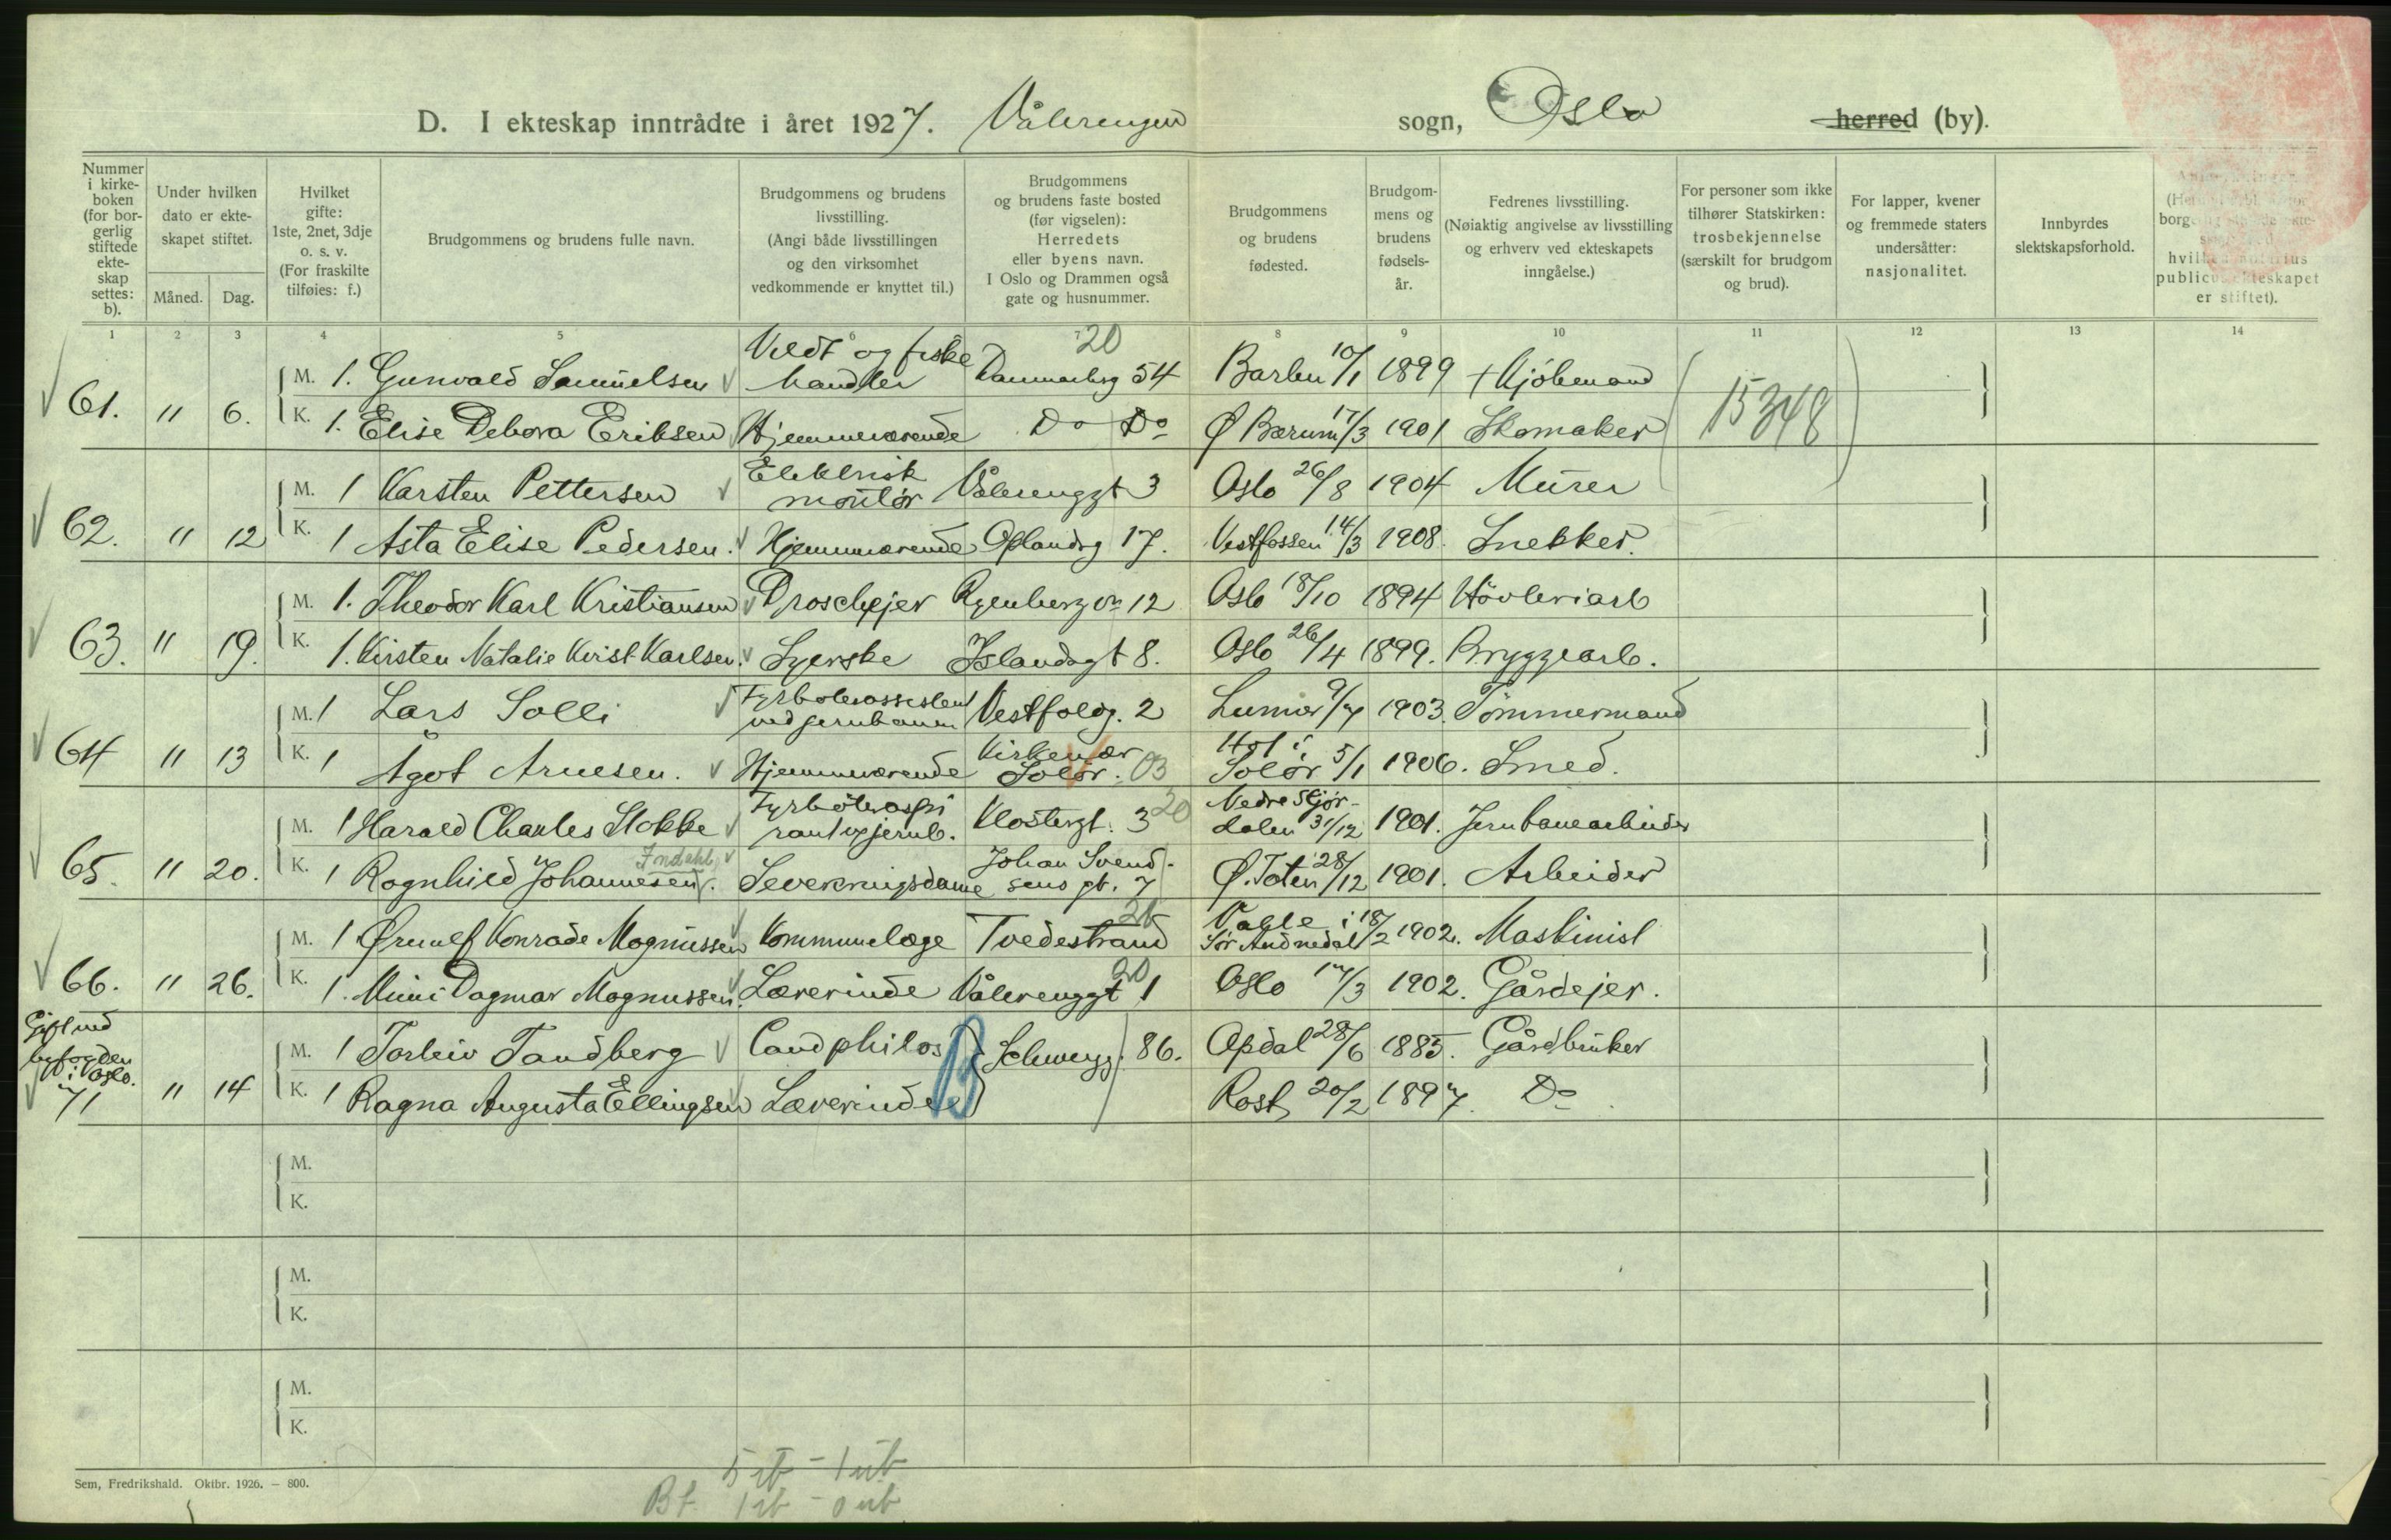 D. I ekteskap inntrådte i året 1927. Vålerengen sogn, Oslo herred (by).
Nummer i kirkeboken (for borgerlig stiftede ekteskap settes: b).
Under hvilken dato er ekteskapet stiftet.
Måned. Dag.
Hvilket gifte: 1ste, 2net, 3dje o. s. v. (For fraskilte tilføies: f.)
Brudgommens og brudens fulle navn.
Brudgommens og brudens livsstilling. (Angi både livsstillingen og den virksomhet vedkommende er knyttet til.)
Brudgommens og brudens faste bosted (før vigselen): Herredets eller byens navn. I Oslo og Drammen også gate og husnummer.
Brudgommens og brudens fødested.
Brudgommens og brudens fødselsår.
Fedrenes livsstilling. (Nøiaktig angivelse av livsstilling og erhverv ved ekteskapets inngåelse.)
For personer som ikke tilhører Statskirken: trosbekjennelse (særskilt for brudgom og brud).
For lapper, kvener og fremmede staters undersåtter: nasjonalitet.
Innbyrdes slektskapsforhold.
hvilken notarius publicus ekteskapet er stiftet).
1 2 3 4 5 6 7 8 9 10 11 12 13 14
20
M. 1. Gunvald Samuelsen Vildt og fiske handler Danmarksg 54 Barbu 10/1 1899 + Kjöbmand
61. " 6. K. 1. Elise Debora Eriksen Hjemmeværende Do Do Ø Bærum 17/3 1901 Skomaker 15348
M. 1 Karsten Pettersen Elektrisk montör Vålerenggt 3 Oslo 26/8 1904 Murer
62. " 12 K. 1 Asta Elise Pedersen. Hjemmeværende Oplandsg 17. Vestfossen 14/3 1908. Snekker.
M. 1. Theodor Karl Kristiansen Droscheejer Ryenbergvn 12 Oslo 18/10 1894 Hövleriarb
63. " 19. K. 1. Kirsten Natalie Kvist Karlsen. Syerske Islandsgt 8. Oslo 26/4 1899. Bryggearb.
M. 1 Lars Solli Fyrböterassistent ved jernbanen Vestfoldg. 2 Lunner 9/7 1903. Tömmermand
64 " 13 K. 1 Ågot Arnesen. Hjemmeværende Kirkenær Solör. 03 Hof i Solör 5/1 1906. Smed.
M. 1 Harald Charles Stokke Fyrböteraspirant v jernb. Klostergt. 3 20 Nedre Stjördalen 31/12 1901. Jernbanearbeider
Indahl
65. " 20. K. 1 Ragnhild Johannesen. Severingsdame Johan Svendsens gt. 7 Ø. Toten 28/12 1901. Arbeider
M. 1 Ørnulf Konrade Magnussen Kommunelæge Tvedestrand Valle i Sör Audnedal 18/2 1902. Maskinist
66. " 26. K. 1. Mimi Dagmar Magnussen. Lærerinde Vålerenggt 1 20 Oslo 17/3 1902. Gårdejer.
Gift ved byfogden i Oslo.
M. 1 Torleiv Tandberg Cand philos Schweigg. 86. Opdal 28/6 1885. Gårdbruker
71 " 14 K. 1 Ragna Augusta Ellingsen Lærerinde Røst 20/2 1897. Do
B
M.
K.
M.
K.
M.
K.
Sem, Fredrikshald. Oktbr. 1926. — 800.
5 rb - 1 ub
Bf. 1 rb - 0 ub